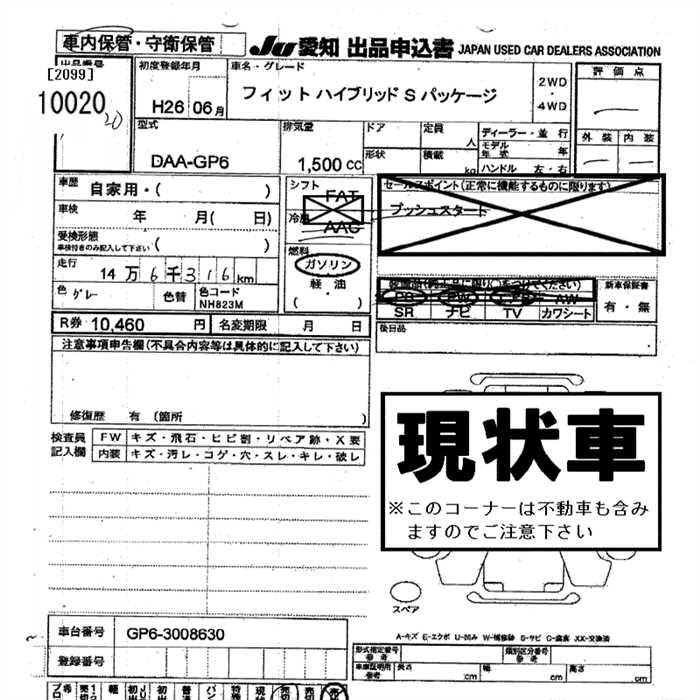 車内保管・守衛保管
JU 愛知 出品申込書 JAPAN USED CAR DEALERS ASSOCIATION
出品番号
[2099]
10020
20
初度登録年月
H26 06 月
車名・グレード
フィット ハイブリッド S パッケージ
2WD
・
4WD
評価点
外装 内装
型式
DAA-GP6
排気量
1,500 cc
ドア
形状
定員
人
積載
kg
ディーラー・並行
モデル年式 年
ハンドル 左・右
車歴 自家用・( )
車検 年 月( 日)
受検形態
車検付きのみ記入して下さい ( )
走行
14 万 6 千 316 km
色 グレー
色替
色コード
NH823M
シフト
FAT
冷房
AAC
燃料
ガソリン
軽油
( )
セールスポイント(正常に機能するものに限ります)
プッシュスタート
装備品(純正品に限り〇をつけてください)
PS PW AW
SR ナビ TV カワシート
新車保証書
有・無
R券 10,460 円
名変期限 月 日
後日品
注意事項申告欄(不具合内容等は具体的に記入して下さい)
修復歴 有 (箇所 )
検査員
記入欄
FW キズ・飛石・ヒビ割・リペア跡・X要
内装 キズ・汚レ・コゲ・穴・スレ・キレ・破レ
現状車
※このコーナーは不動車も含み
ますのでご注意下さい
スペア
A-キズ E-エクボ U-凹み W-補修跡 S-サビ C-腐食 XX-交換済
車台番号 GP6-3008630
登録番号
型式指定番号
参考
類別区分番号
参考
車庫証明用
参考
長さ cm 幅 cm 高さ cm